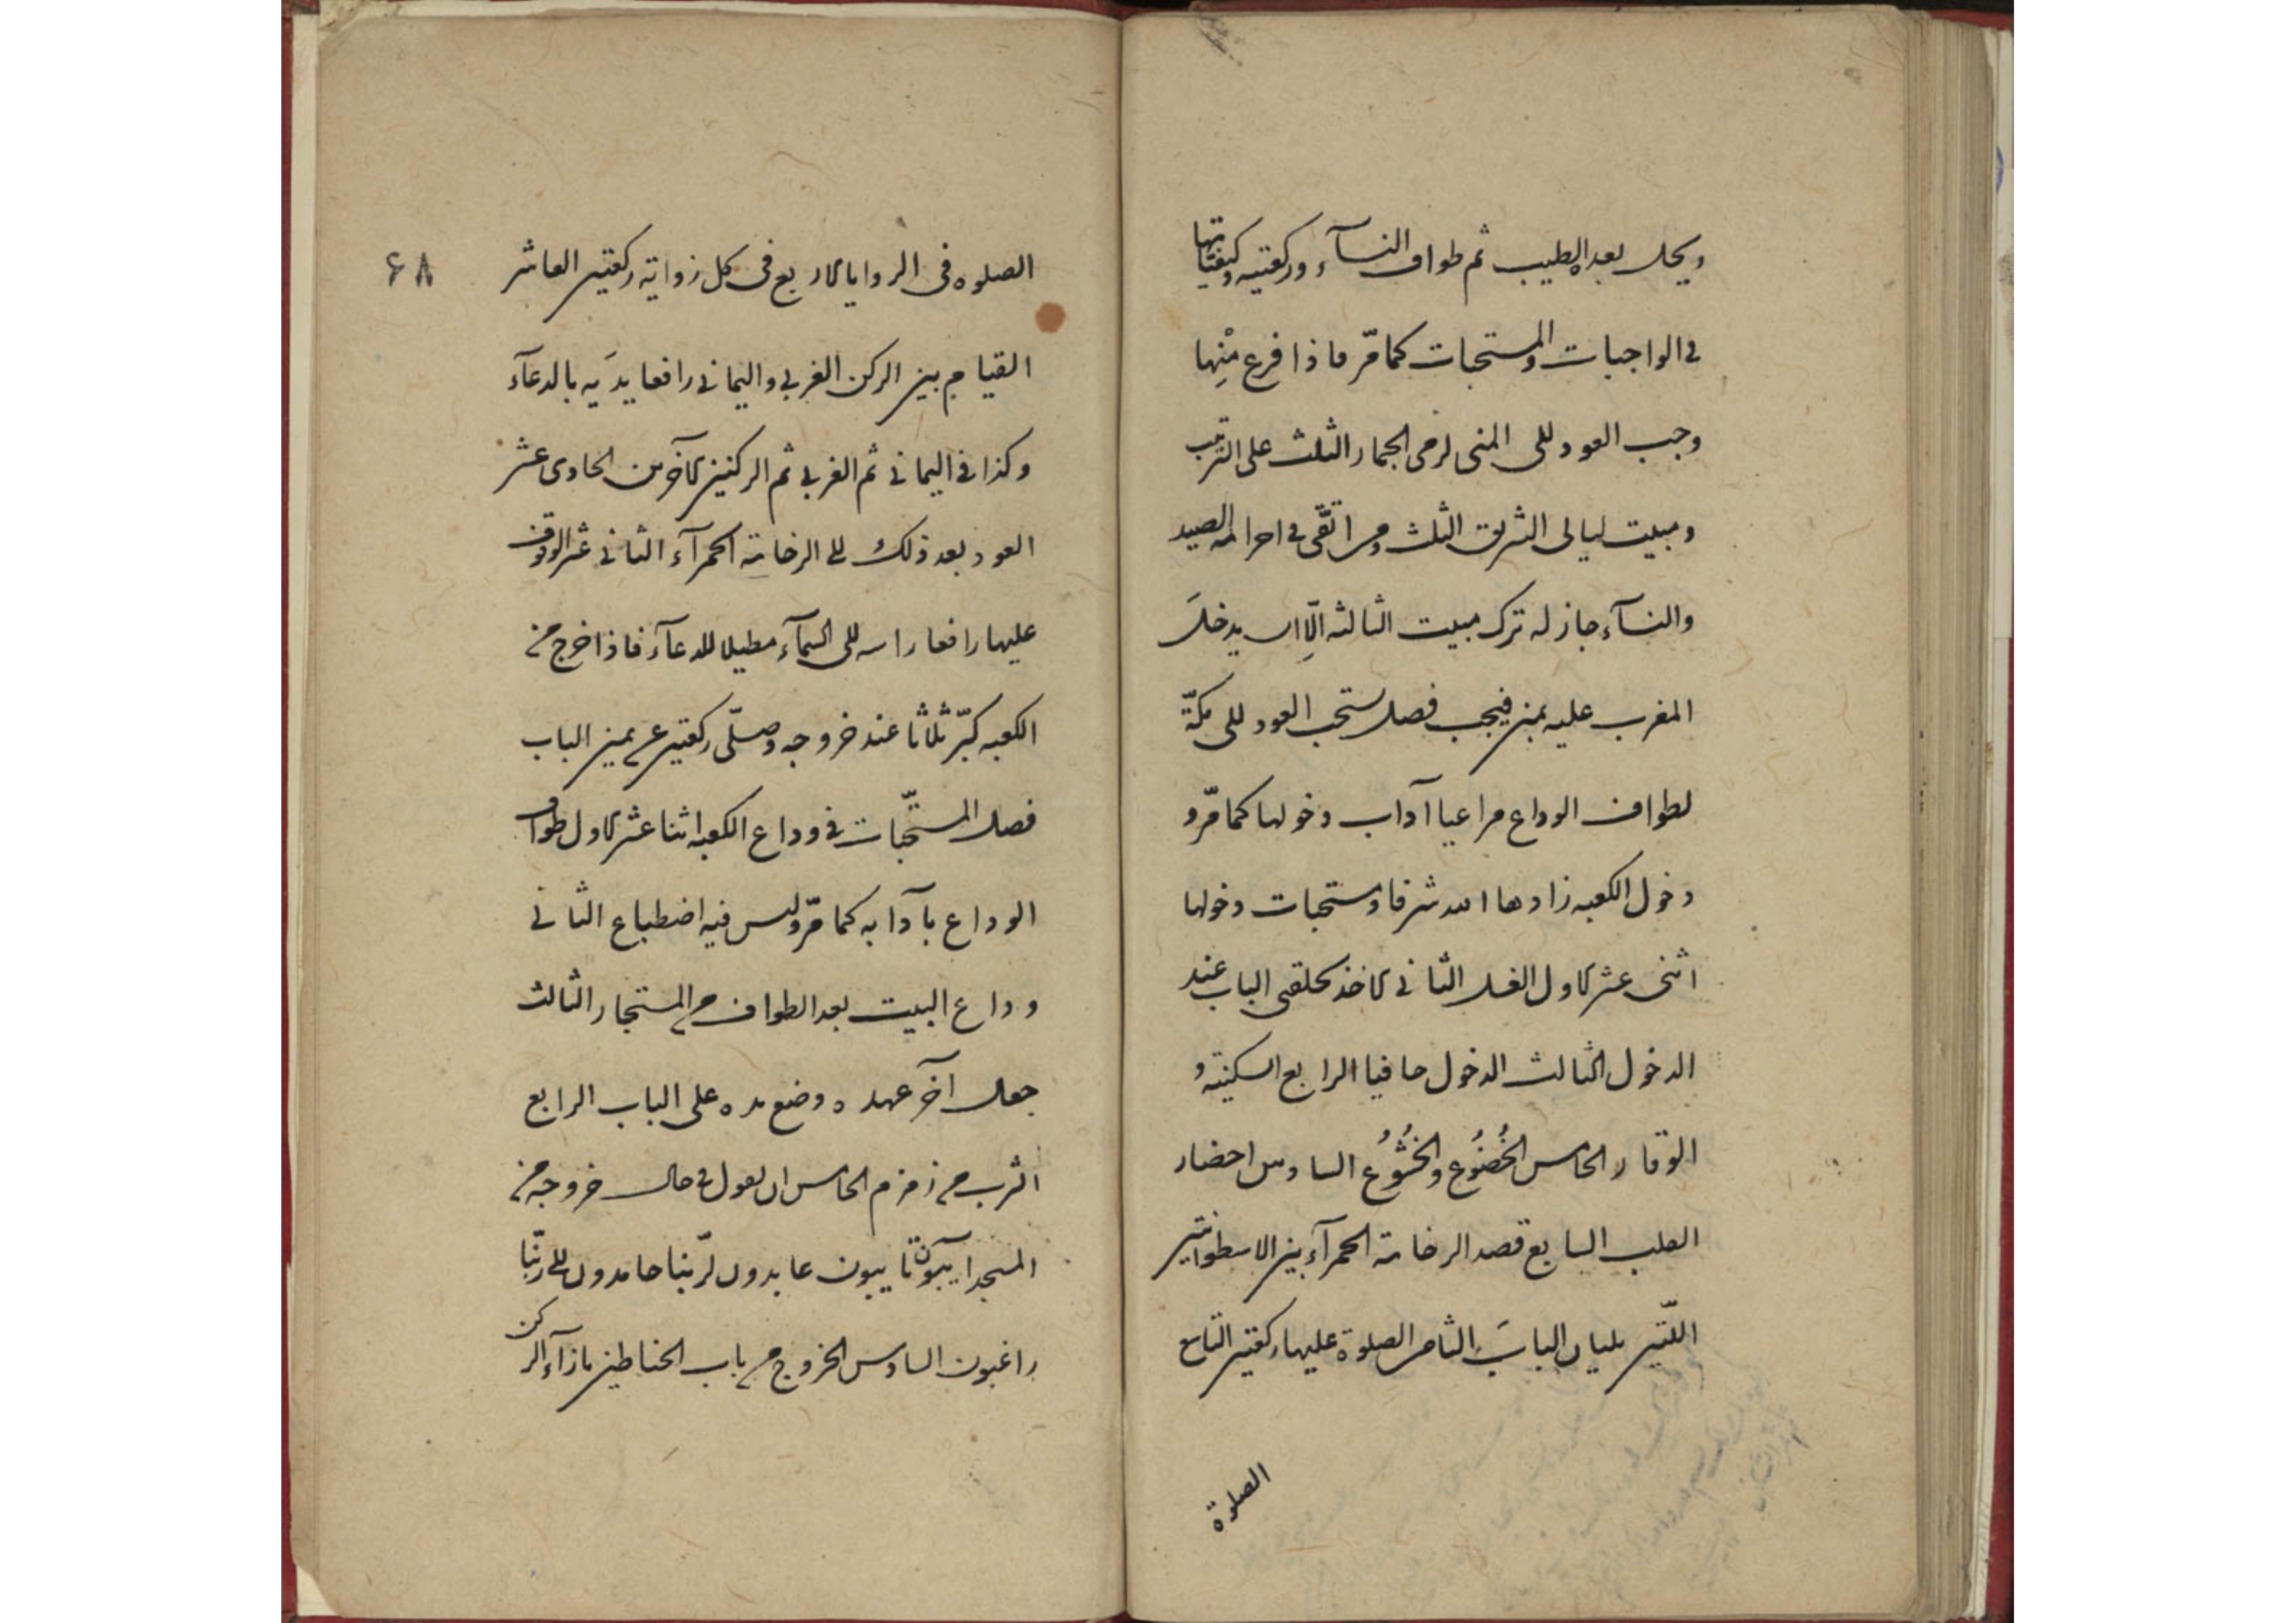 ويحل بعده الطيب ثم طواف النسآء وركعتيه وكيفياتها
في الواجبات والمستحبات كما مرّ فاذا فرغ مِنْها
وجب العود الى المنى لرمى الجمار الثلث على الترتيب
ومبيت ليالى التشريق الثلث ومن اتقى في احرامه الصيد
والنسآء جاز له ترك مبيت الثالثه الّا ان يدخلَ
المغرب عليه بمنى فيجب فصل يستحب العود الى مكّة
لطواف الوداع مراعيا آداب دخولها كما مرّ و
دخول الكعبه زادها الله شرفا ومستحبات دخولها
اثنى عشر الاول الغسل الثانى الاخذ بحلقتى الباب عند
الدخول الثالث الدخول حافيا الرابع السكينة و
الوقار الخامس الخُضُوع والخُشُوُع السادس احضار
القلب السابع قصد الرخامة الحمرآء بين الاسطوانتين
اللّتين يليان البابَ الثامن الصلوة عليها ركعتين التاسع
الصلوة
٦٨
الصلوه فى الزوايا الاربع فى كل زواية ركعتين العاشر
القيام بين الركن الغربي واليماني رافعا يدَيه بالدعآء
وكذا في اليماني ثم الغربي ثم الركنين الآخرين الحادى عشر
العود بعد ذلك الى الرخامة الحمرآء الثاني عشر الوقوف
عليها رافعا راسه الى السمآء مطيلا للدعآء فاذا خرج من
الكعبه كبّر ثلاثا عند خروجه وصلّى ركعتين عن يمين الباب
فصل المستحّبات في وداع الكعبه اثنا عشر الاول طواف
الوداع بآدابه كما مرّ وليس فيه اضطباع الثاني
وداع البيت بعد الطواف من المستجار الثالث
جعل آخر عهده وضع يده على الباب الرابع
الشرب من زمزم الخامس ان يقول في حال خروجه من
المسجد آيبون تايبون عابدون لربّنا حامدون الى ربّنا
راغبون السادس الخروج من باب الحناطين بازآء الركن